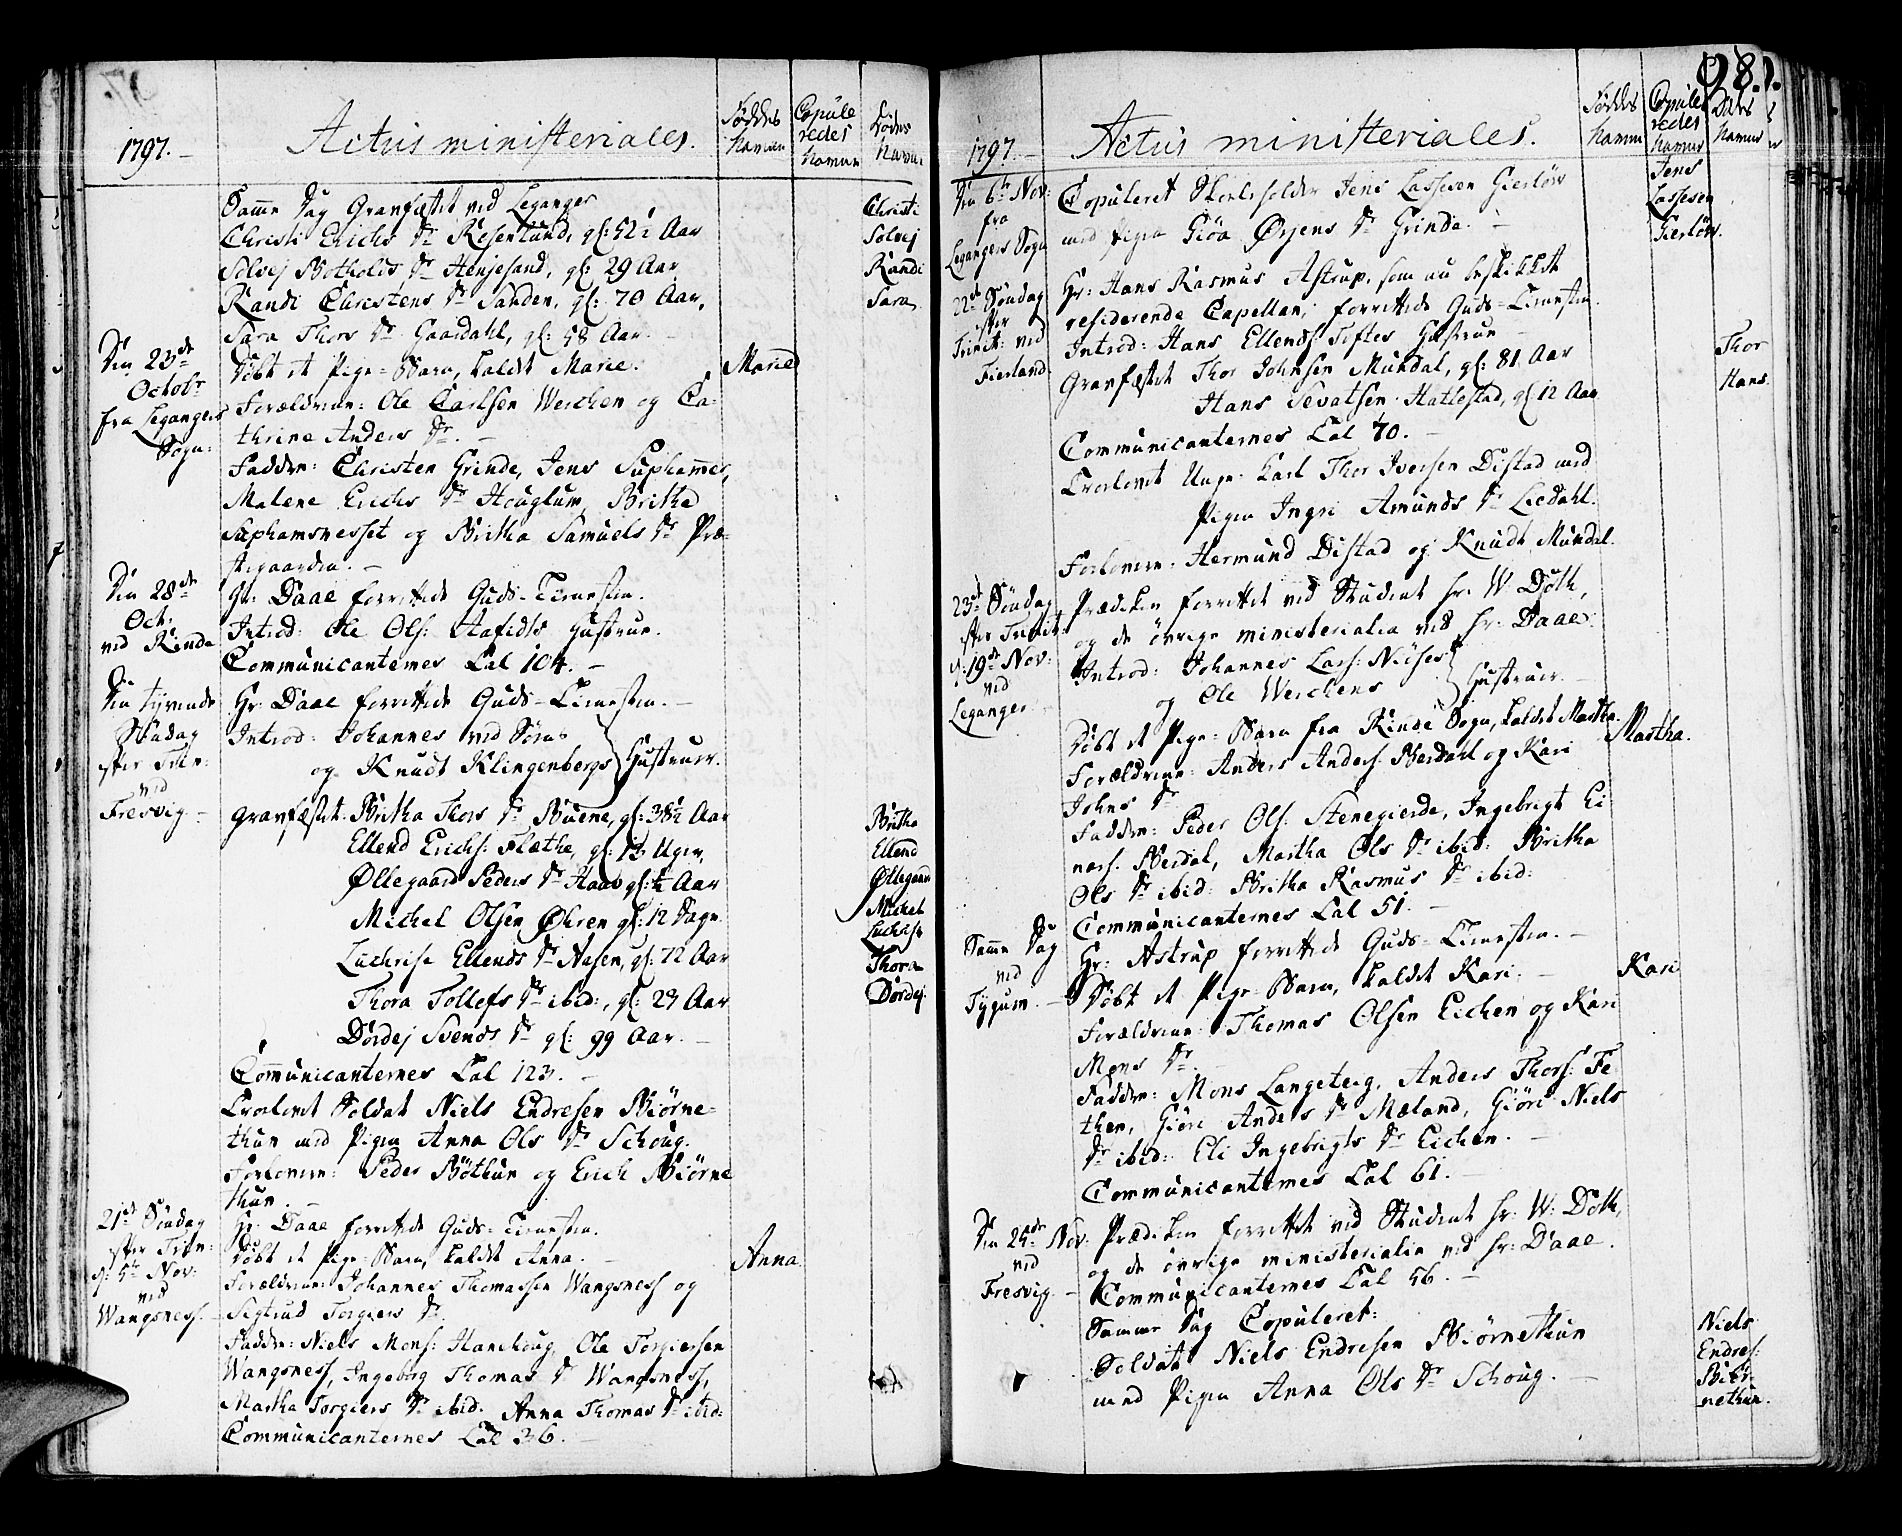 1797.
Actus ministeriales.
Føddes Navne
Copuleredes Navne
Dødes Navne
Samme Dag Gravfæstet ved Leganger
Christi Erichs Dr Rosenlund, gl: 52½ Aar
Christi
Solvej Botholds Dr Henjesand, gl: 29 Aar
Solvej
Randi Christens Dr Sanden, gl: 70 Aar,
Randi
Sara Thors Dr Gaardahl, gl: 58 Aar.
Sara
Den 23de Octobr fra Legangers Sogn:
Døbt et Pige-Barn, kaldt Marie.
Marie
Forældrene: Ole Carlsen Werchen og Ca-
thrine Anders Dr. -
Faddere: Christen Grinde, Jens Suphammer,
Malene Erichs Dr Houglum, Britha
Suphamsnesset og Britha Samuels Dr Præ-
stegaarden. -
Den 28de Oct: ved Rinde
Hr: Daae forrettede Guds-Tienesten.
Introd: Ole Ols: Aafedts Hustrue.
Communicanternes Tal 104. -
Den tyvende Søndag efter Trin: ved Fresvig -
Hr: Daae forrettede Guds-Tienesten. -
Introd: Johannes ved Søens
og Knudt Klingenbergs Hustruer.
Gravfæstet: Britha Thors Dr Buene, gl: 38½ Aar
Britha
Ellend Erichs: Flæthe, gl: 13 Uger,
Ellend
Øllegaard Peders Dr Haab gl: ½ Aar
Øllegaard
Michel Olsen Øhren gl: 12 Dage
Michel
Luchrise Ellends Dr Aasen, gl: 72 Aar
Luchrise
Thora Tollefs Dr ibid:, gl: 23 Aar
Thora
Dordej Svends Dr gl: 99 Aar. -
Dordej.
Communicanternes Tal 123. -
Trolovet Soldat Niels Endresen Biørne-
thun med Pigen Anna Ols Dr Schoug.
Forlovere: Peder Bøthun og Erich Biørne
thun. -
21de Søndag efter Trin: d: 5te Nov: ved Wangsness. -
Hr: Daae forrettede Guds-Tienesten.
Døbt et Pige-Barn, kaldt Anna. -
Anna.
Forældrene: Johannes Thomassen Wangsness og
Sigtrud Torgiers Dr.
Faddere: Niels Mons: Hanehoug, Ole Torgiersen
Wangsness, Ingeborg Thomas Dr Wangsness,
Martha Torgiers Dr ibid: Anna Thomas Dr ibid:
Communicanternes Tal 36. -
98.
1797. -
Actus ministeriales.
Føddes Navne
Copuleredes Navne
Dødes Navne
Den 6te Nov: fra Legangers Sogn
Copuleret Skoleholder Jens Lassesen Gierløv
med Pigen Giøa Ørjens Dr Grinde. -
Jens
Lassesen
Gierløv.
22de Søndag efter Trinit: ved Fierland
Hr: Hans Rasmus Astrup, som nu beskikket
residerende Capellan, forrettede Guds-Tienesten.
Introd: Hans Ellends: Toftes Hustrue
Gravfæstet Thor Johnsen Mundal, gl: 81 Aar
Thor
Hans Sevatsen Hatlestad, gl: 12 Aar
Hans.
Communicanternes Tal 70. -
Trolovet Unge-Karl Thor Iversen Distad med
Pigen Ingri Amunds Dr Liedahl.
Forlovere: Hermund Distad og Knudt Mundal.
23de Søndag efter Trinit: d: 19de Nov: ved Leganger
Prædiken forrettet ved Student Hr: W: Doth,
og de øvrige ministerialia ved Hr: Daae.
Introd: Johannes Lars: Niøses
og Ole Werchens Hustruer. -
Døbt et Pige-Barn fra Rinde Sogn, kaldet Martha.
Martha.
Forældrene: Anders Anders: Berdahl og Kari
Johns Dr
Faddere: Peder Ols: Stenegierde, Ingebrigt Ei
nars: Berdal, Martha Ols Dr ibid: Britha
Ols Dr ibid: Britha Rasmus Dr ibid:
Communicanternes Tal 51. -
Samme Dag ved Tygum. -
Hr: Astrup forrettede Guds-Tienesten. -
Døbt et Pige-Barn, kaldet Kari. -
Kari
Forældrene: Thomas Olsen Eichen og Kari
Mons Dr. -
Faddere: Mons Langeteig, Anders Thors: Fe
then, Giøri Anders Dr Mæland, Giøri Niels
Dr ibid: Eli Ingebrigts Dr Eichen. -
Communicanternes Tal 61. -
Den 25de Nov: ved Fresvig. -
Prædiken forrettet ved Student Hr: W: Doth,
og de øvrige ministerialia ved Hr: Daae.
Communicanternes Tal 56. -
Samme Dag Copuleret:
Soldat Niels Endresen Biørnethun
med Pigen Anna Ols Dr Schoug. -
Niels
Endres:
Biør-
nethun.